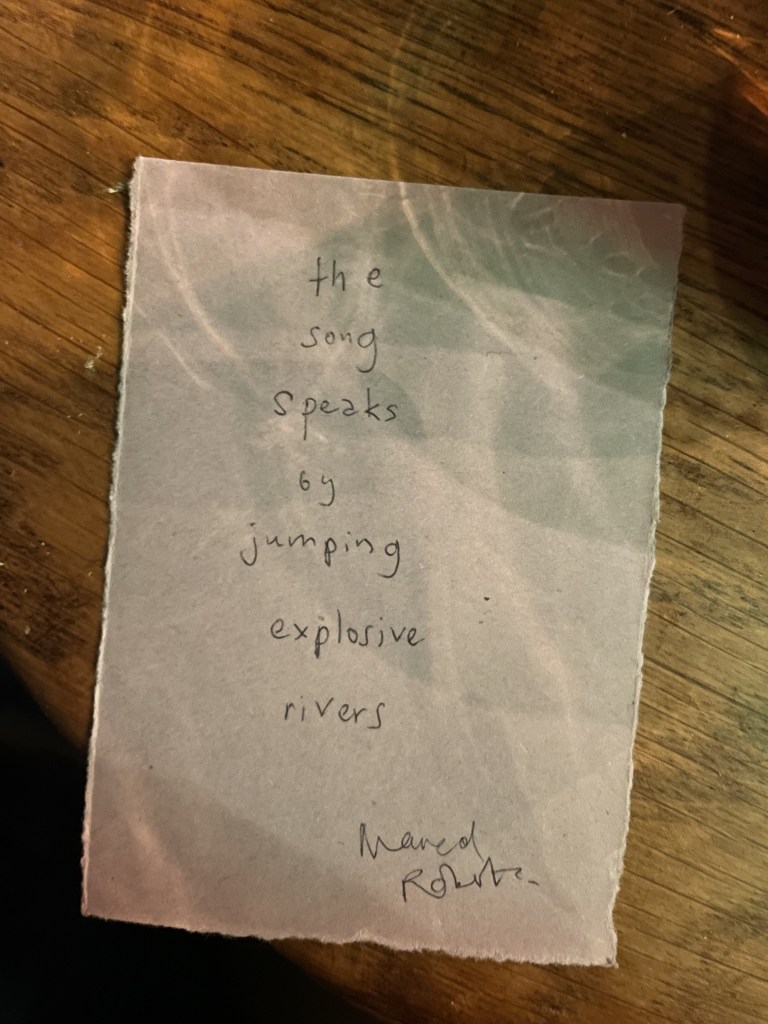 the
song
speaks
by
jumping
explosive
rivers
Mared
Roberts